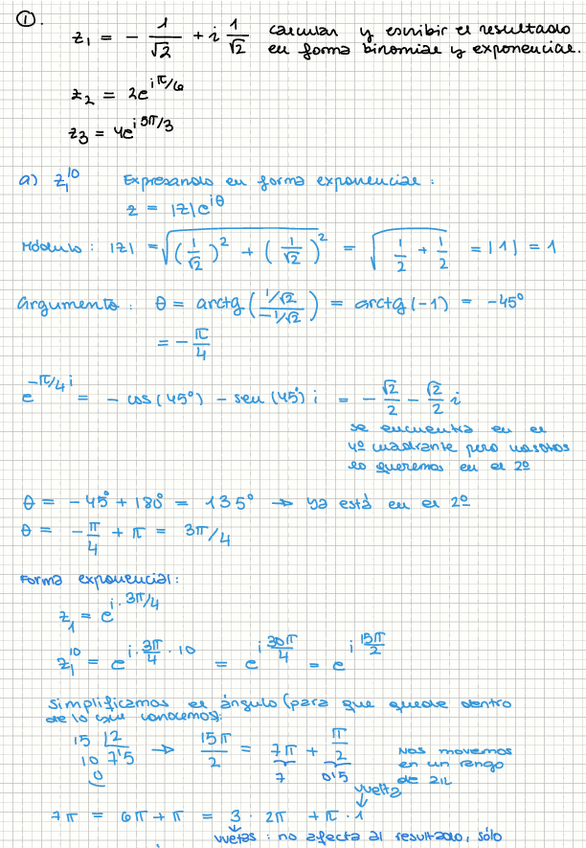 ①. z₁ = - 1/√2 + i 1/√2 calcular y escribir el resultado
en forma binomial y exponencial.
z₂ = 2e^(iπ/6)
z₃ = 4e^(i5π/3)
a) z₁^10 Expresando en forma exponencial:
z = |z|e^(iθ)
Módulo: |z| = √((1/√2)² + (1/√2)²) = √(1/2 + 1/2) = |1| = 1
argumento: θ = arctg((1/√2)/(-1/√2)) = arctg(-1) = -45°
= -π/4
e^(-π/4 i) = - cos(45°) - sen(45°)i = -√2/2 - √2/2 i
se encuentra en el
4º cuadrante pero nosotros
lo queremos en el 2º
θ = -45° + 180° = 135° → ya está en el 2º
θ = -π/4 + π = 3π/4
Forma exponencial:
z₁ = e^(i·3π/4)
z₁^10 = e^(i·3π/4·10) = e^(i 30π/4) = e^(i 15π/2)
Simplificamos el ángulo (para que quede dentro
de lo que conocemos):
15 |2 → 15π/2 = 7π + π/2 Nos movemos
10 7'5 7 0'5 en un rango
0 de 2π
vuelta
7π = 6π + π = 3 · 2π + π · 1
vueltas: no afecta al resultado, sólo